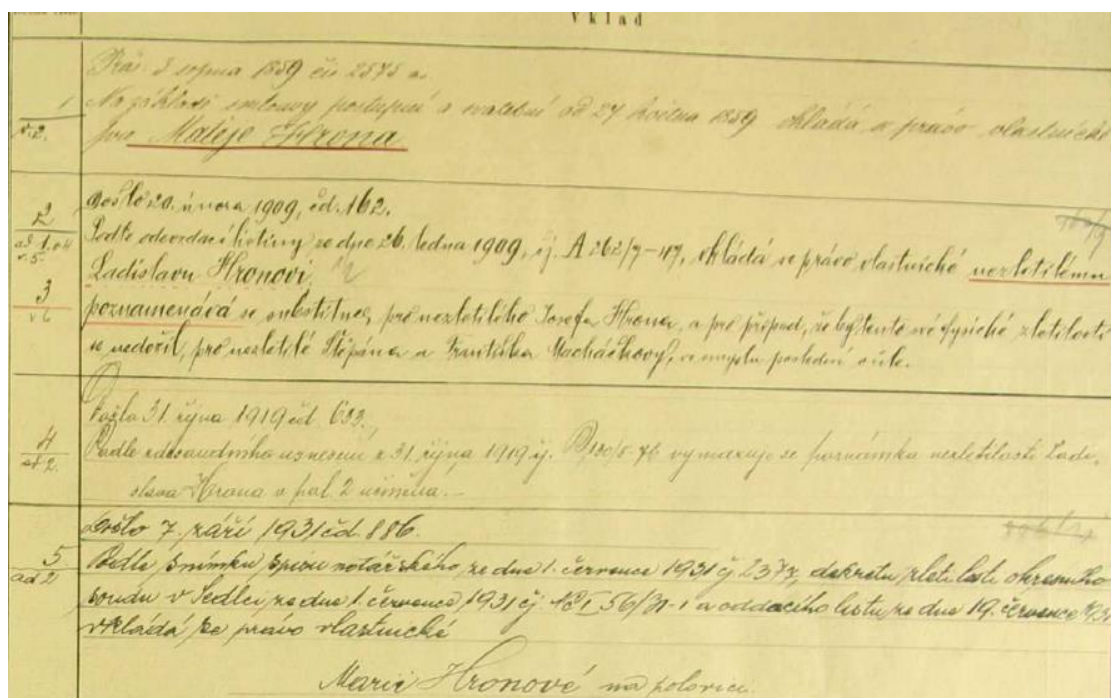 Vklad
1 Prás. 3 srpna 1889 čís 2878 a.
Na základě smlouvy postupní a svatební od 27 května 1889 vkládá se právo vlastnické
pro Matěje Hrona
2 Došlo 20. února 1909, čd. 162.
Podle odevzdací listiny ze dne 26. ledna 1909, čj. A 262/7-47, vkládá se právo vlastnické nezletilému
Ladislavu Hronovi,
3 poznamenává se substituce pro nezletilého Josefa Hrona, a pro případ, že by tento své fysické zletilosti
se nedožil, pro nezletilé Štěpána a Františka Macháčkovy, ve smyslu poslední vůle.
Došlo 31. října 1919 čd. 633.
4 Podle usnesení z 31. října 1919 čj. vymazuje se poznámka nezletilosti Ladi-
ad 2. slava Hrona v pol. 2 učiněná.—
Došlo 7. září 1931 čd. 886.
5 Podle snímku spisu notářského ze dne 1. července 1931 čj 2372, dekretu zletilosti okresního
ad 2 soudu v Sedlci ze dne 1. července 1931 čj. Nc I 56/31-1 a oddacího listu ze dne 19. července 1931
vkládá se právo vlastnické
Marii Hronové na polovici.